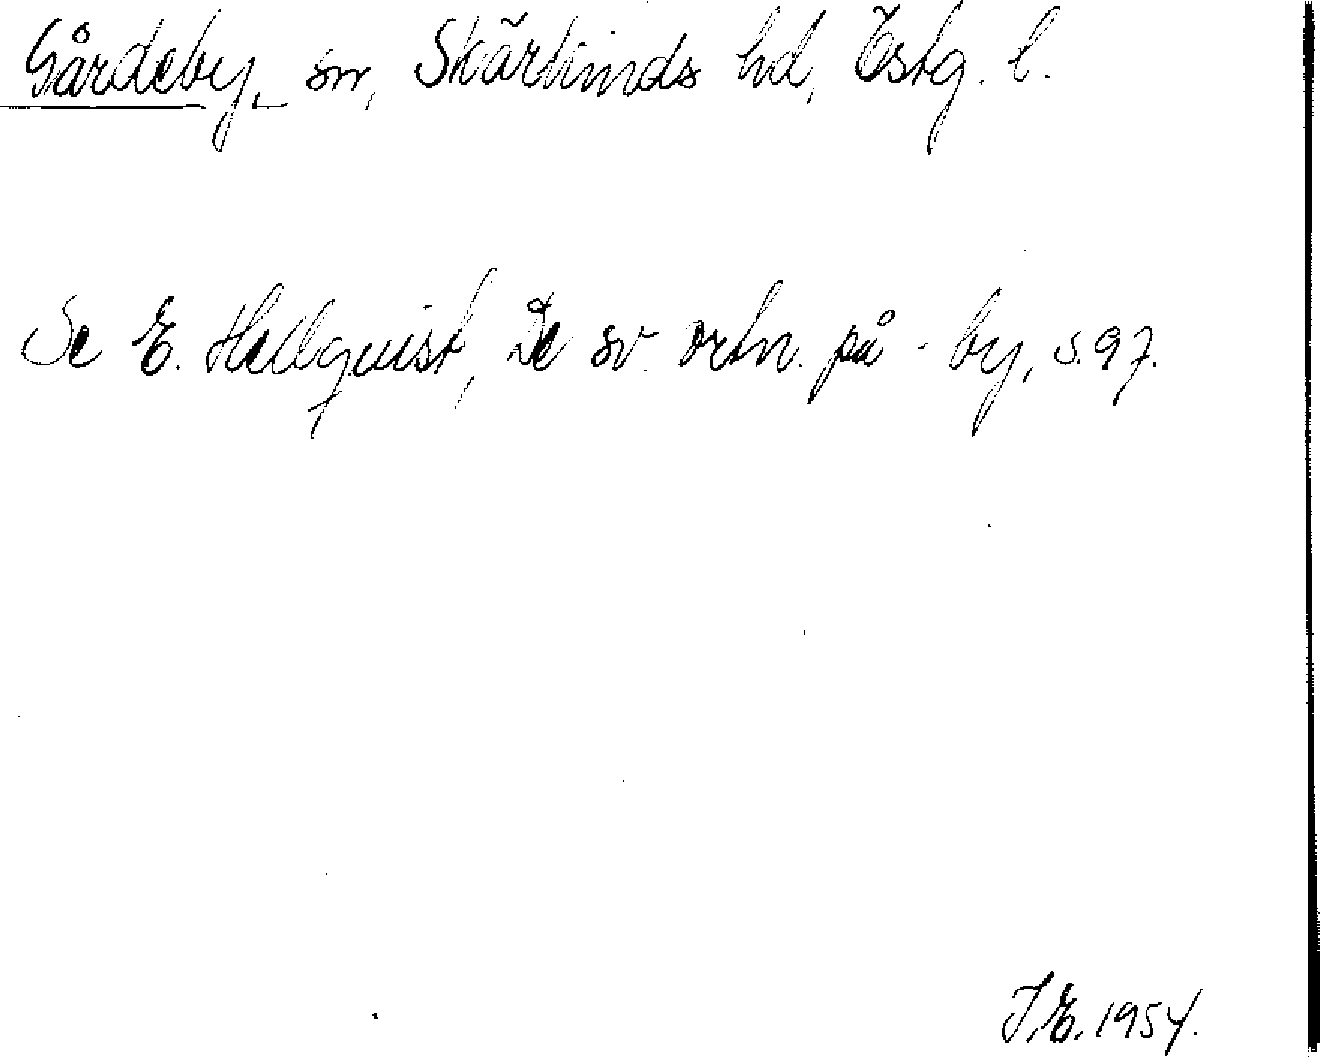 Gårdeby, sn, Skärkinds hd, Östg. l.
Se E. Hellquist, De sv. ortn. på -by, s. 97.
I.E. 1954.